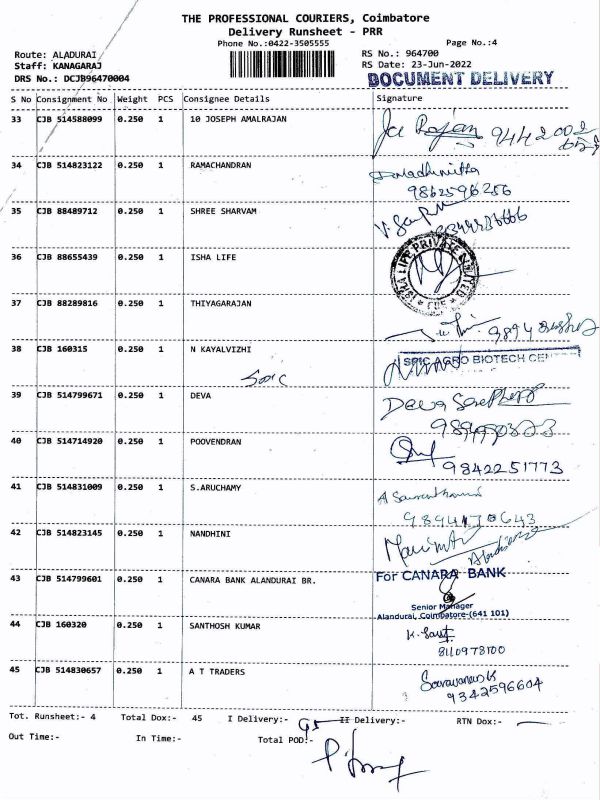 THE PROFESSIONAL COURIERS, Coimbatore
Delivery Runsheet - PRR
Phone No.:0422-3505555 Page No.:4
Route: ALADURAI RS No.: 964700
Staff: KANAGARAJ RS Date: 23-Jun-2022
DRS No.: DCJB96470004 DOCUMENT DELIVERY
S No Consignment No Weight PCS Consignee Details Signature
33 CJB 514588099 0.250 1 10 JOSEPH AMALRAJAN
34 CJB 514823122 0.250 1 RAMACHANDRAN
9862596256
35 CJB 88489712 0.250 1 SHREE SHARVAM
36 CJB 88655439 0.250 1 ISHA LIFE ISHA LIFE PRIVATE LIMITED
37 CJB 88289816 0.250 1 THIYAGARAJAN
38 CJB 160315 0.250 1 N KAYALVIZHI SPIC AGRO BIOTECH CENTRE
39 CJB 514799671 0.250 1 DEVA Deva
40 CJB 514714920 0.250 1 POOVENDRAN
9842251773
41 CJB 514831009 0.250 1 S.ARUCHAMY
9894170643
42 CJB 514823145 0.250 1 NANDHINI
43 CJB 514799601 0.250 1 CANARA BANK ALANDURAI BR. For CANARA BANK
Senior Manager
Alandurai, Coimbatore-(641 101)
44 CJB 160320 0.250 1 SANTHOSH KUMAR
8110978100
45 CJB 514830657 0.250 1 A T TRADERS
9342596604
Tot. Runsheet:- 4 Total Dox:- 45 I Delivery:- II Delivery:- RTN Dox:-
Out Time:- In Time:- Total POD:-